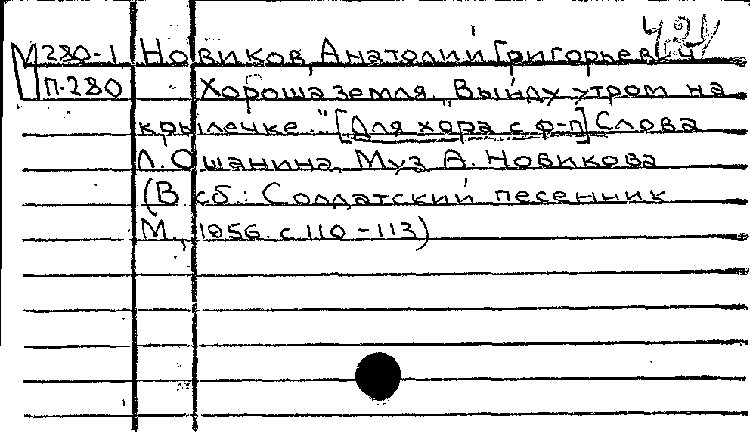 421
М280-1 Новиков, Анатолий Григорьевич
П.280 Хороша земля. "Выйду утром на
крылечке..." [Для хора с ф-п] Слова
Л. Ошанина. Муз А. Новикова
(В сб.: Солдатский песенник
М., 1956. с 110-113)